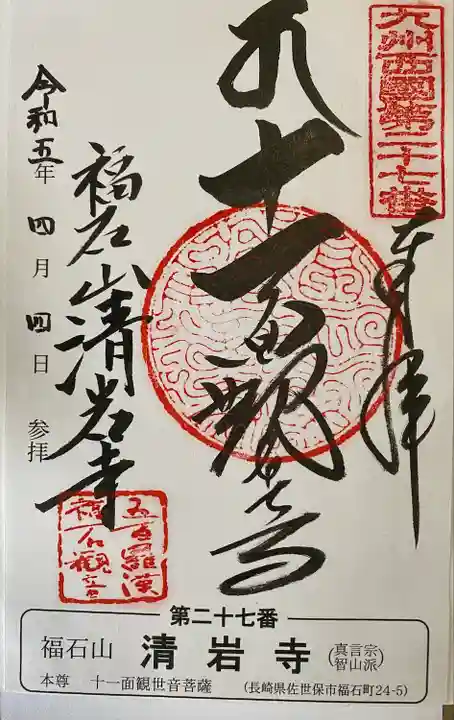 九州西國第二十七番
奉拝
九十一面観世音
福石山清岩寺
令和五年四月四日参拝
五百羅漢
福石観音
第二十七番
福石山 清岩寺 (真言宗智山派)
本尊 十一面観世音菩薩 (長崎県佐世保市福石町24-5)